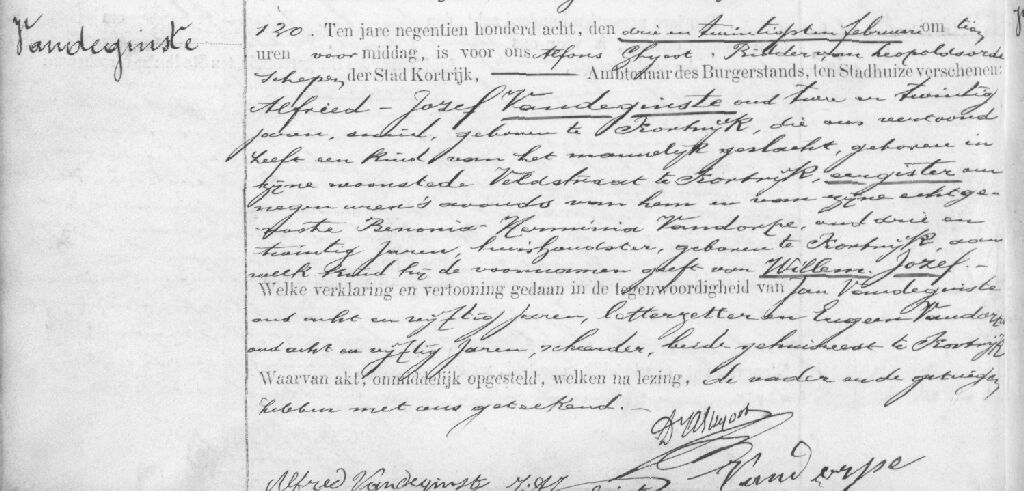 Vandeginste
130. Ten jare negentien honderd acht, den drie en twintigsten februari om tien
uren voormiddag, is voor ons Alfons Ghyoot Ridder van Leopoldsorde
Schepen der Stad Kortrijk, Ambtenaar des Burgerstands, ten Stadhuize verschenen:
Alfried - Jozef Vandeginste oud twee en twintig
jaren, smid, geboren te Kortrijk, die ons vertoond
heeft een kind van het mannelijk geslacht, geboren in
zijne woonstede Veldstraat te Kortrijk, eergister om
negen uren 's avonds van hem en van zijne echtge-
noote Benonia Herminia Vandorpe, oud drie en
twintig Jaren, huishoudster, geboren te Kortrijk, aan
welk kind hij de voornamen geeft van Willem Jozef. -
Welke verklaring en vertooning gedaan in de tegenwoordigheid van Jan Vandeginste
oud acht en vijftig Jaren, letterzetter en Eugeen Vandorpe
oud acht en vijftig Jaren, beide gehuisvest te Kortrijk
Waarvan akt, onmiddelijk opgesteld, welken na lezing, de vader en de getuigen
hebben met ons geteekend. -
Dr AGhyoot
Alfred Vandeginste Vandorpe